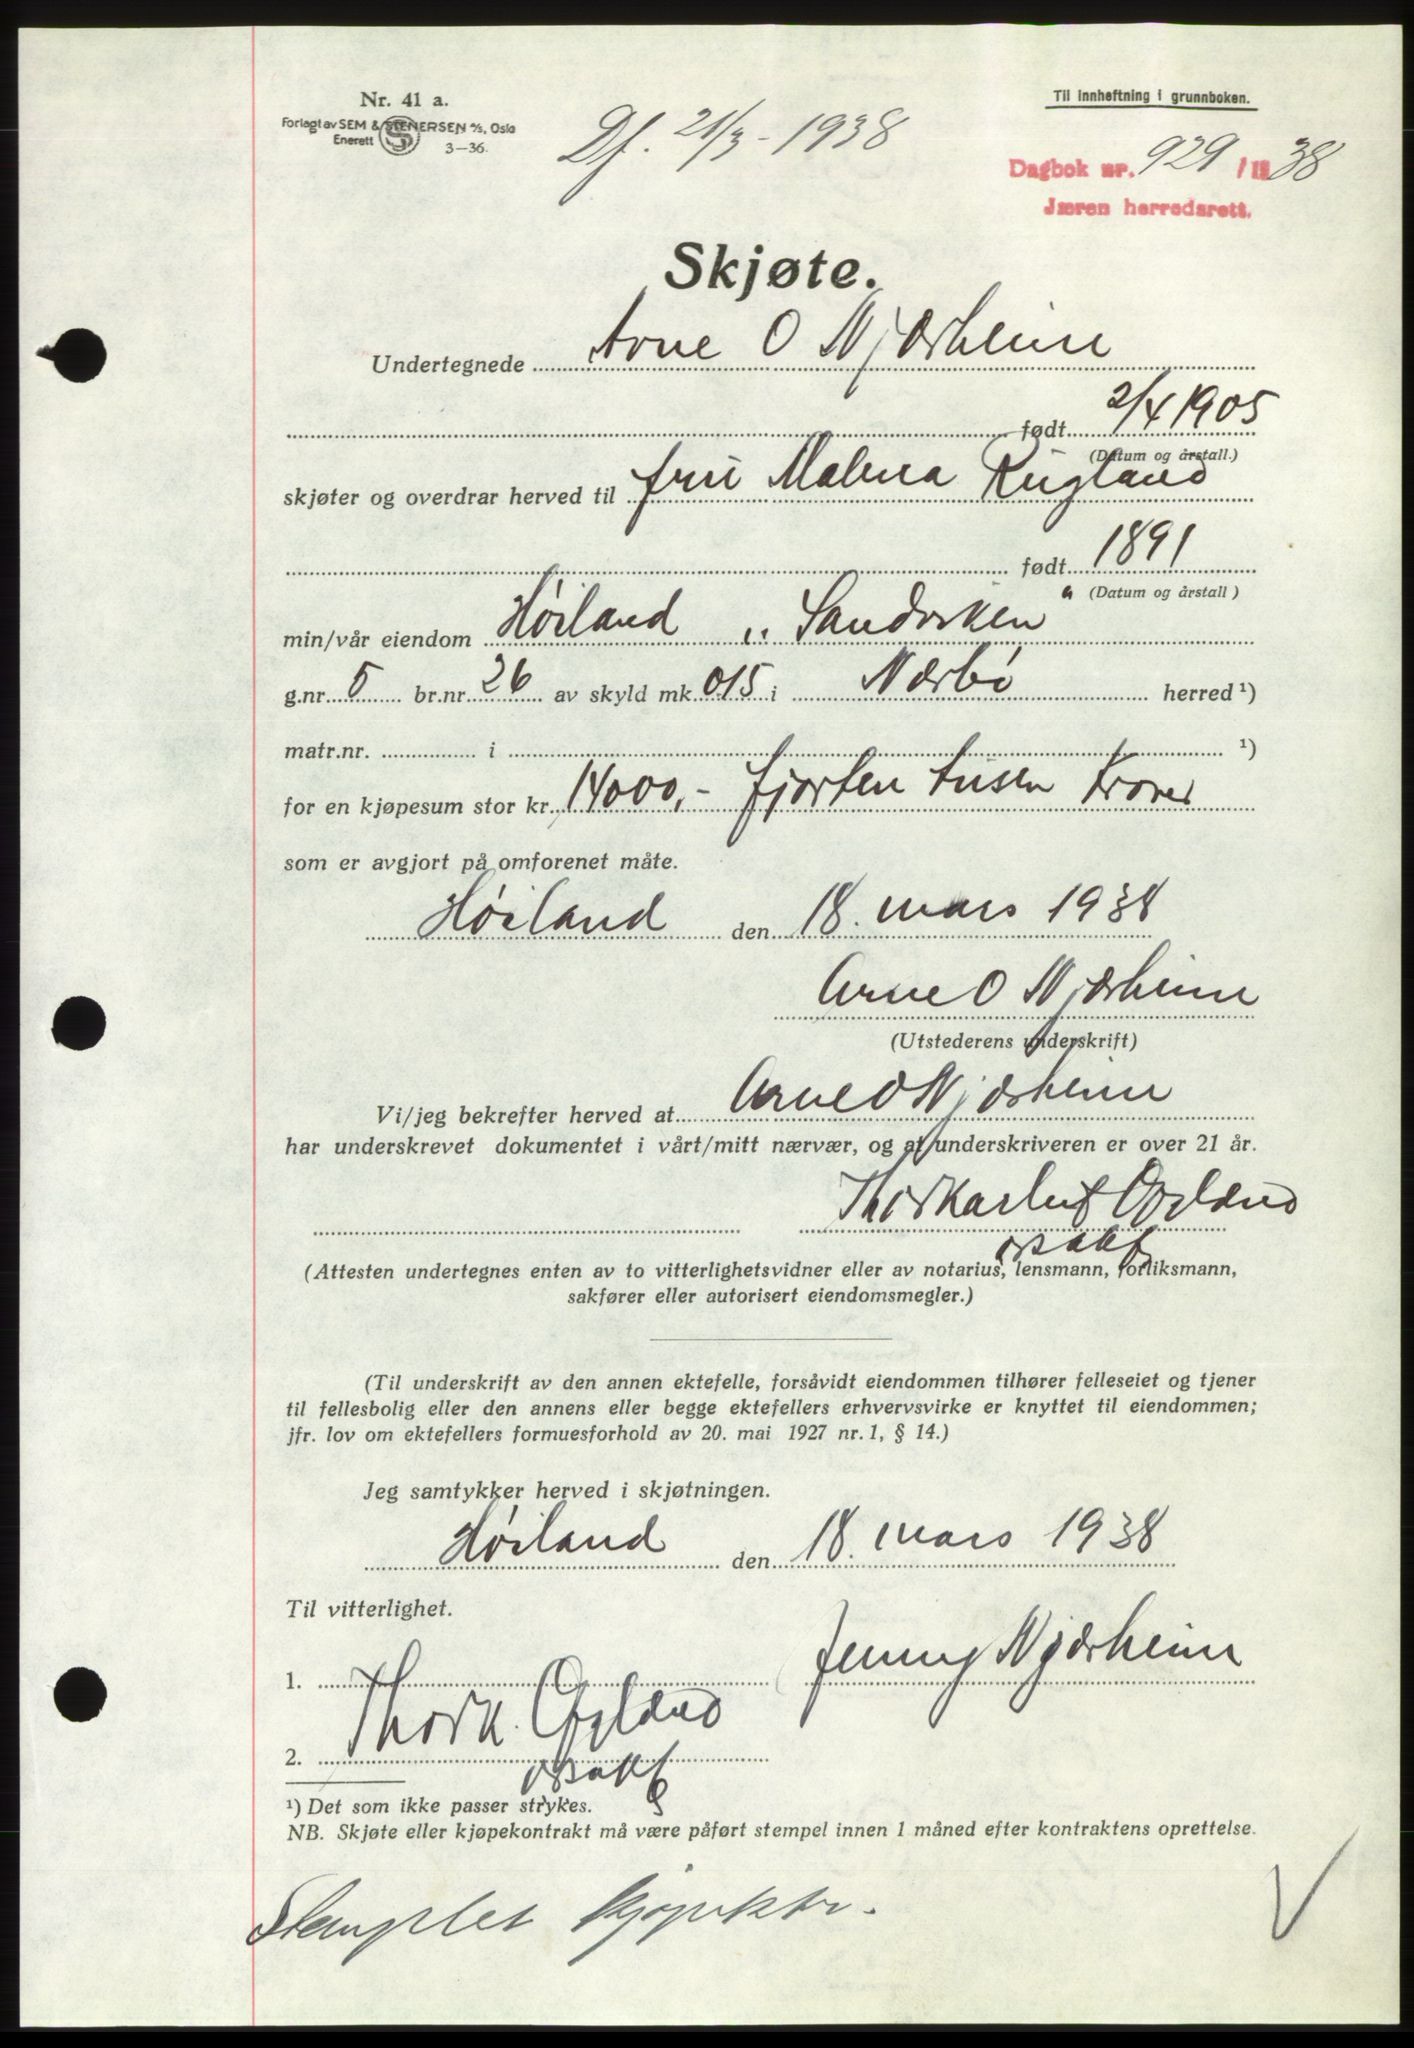 Nr. 41 a.
Forlagt av SEM & STENERSEN A/S, Oslo
Enerett 3—36.
Til innheftning i grunnboken.
Df. 21/3 - 1938
Dagbok nr. 929 /1938
Jæren herredsrett.
Skjøte.
Undertegnede Arne O Njærheim
født 2/4 1905
(Datum og årstall.)
skjøter og overdrar herved til fru Malena Rugland
født 1891
(Datum og årstall)
min/vår eiendom Höiland „Sandviken"
g.nr. 5 br.nr. 26 av skyld mk. 015 i Nærbö herred ¹)
matr.nr. i ¹)
for en kjøpesum stor kr. 14000,- fjorten tusen kroner
som er avgjort på omforenet måte.
Höiland den 18. mars 1938
Arne O Njærheim
(Utstederens underskrift)
Vi/jeg bekrefter herved at Arne O Njærheim
har underskrevet dokumentet i vårt/mitt nærvær, og at underskriveren er over 21 år.
Opland
(Attesten undertegnes enten av to vitterlighetsvidner eller av notarius, lensmann, forliksmann,
sakfører eller autorisert eiendomsmegler.)
(Til underskrift av den annen ektefelle, forsåvidt eiendommen tilhører felleseiet og tjener
til fellesbolig eller den annens eller begge ektefellers erhvervsvirke er knyttet til eiendommen;
jfr. lov om ektefellers formuesforhold av 20. mai 1927 nr. 1, § 14.)
Jeg samtykker herved i skjøtningen.
Höiland den 18. mars 1938
Til vitterlighet.
Jenny Njærheim
1.
Thork. Opland
2.
¹) Det som ikke passer strykes.
NB. Skjøte eller kjøpekontrakt må være påført stempel innen 1 måned efter kontraktens oprettelse.
Stemplet kjøpektr.